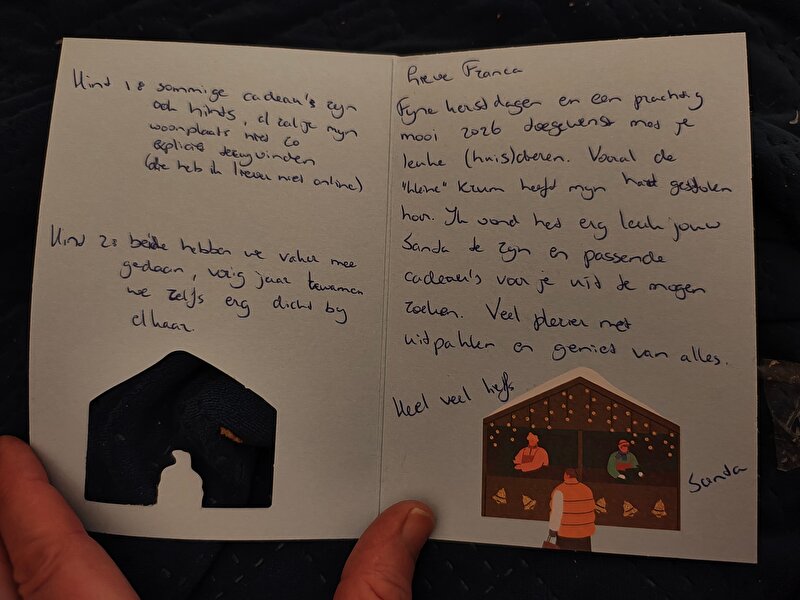 Hint 1: sommige cadeau's zyn
ook hints, al zal je myn
woonplaats niet zo
expliciet terugvinden
(die heb ik liever niet online)
Hint 2: beide hebben we vaker mee
gedaan, vorig jaar kwamen
we zelfs erg dicht by
elkaar.
Lieve Franca
Fyne kerstdagen en een prachtig
mooi 2026 toegewenst met je
leuke (huis)dieren. Vooral de
"kleine" Krum heeft myn hart gestolen
hoor. Ik vond het erg leuk jouw
Santa te zyn en passende
cadeau's voor je uit te mogen
zoeken. Veel plezier met
uitpakken en geniet van alles.
Heel veel liefs
Santa